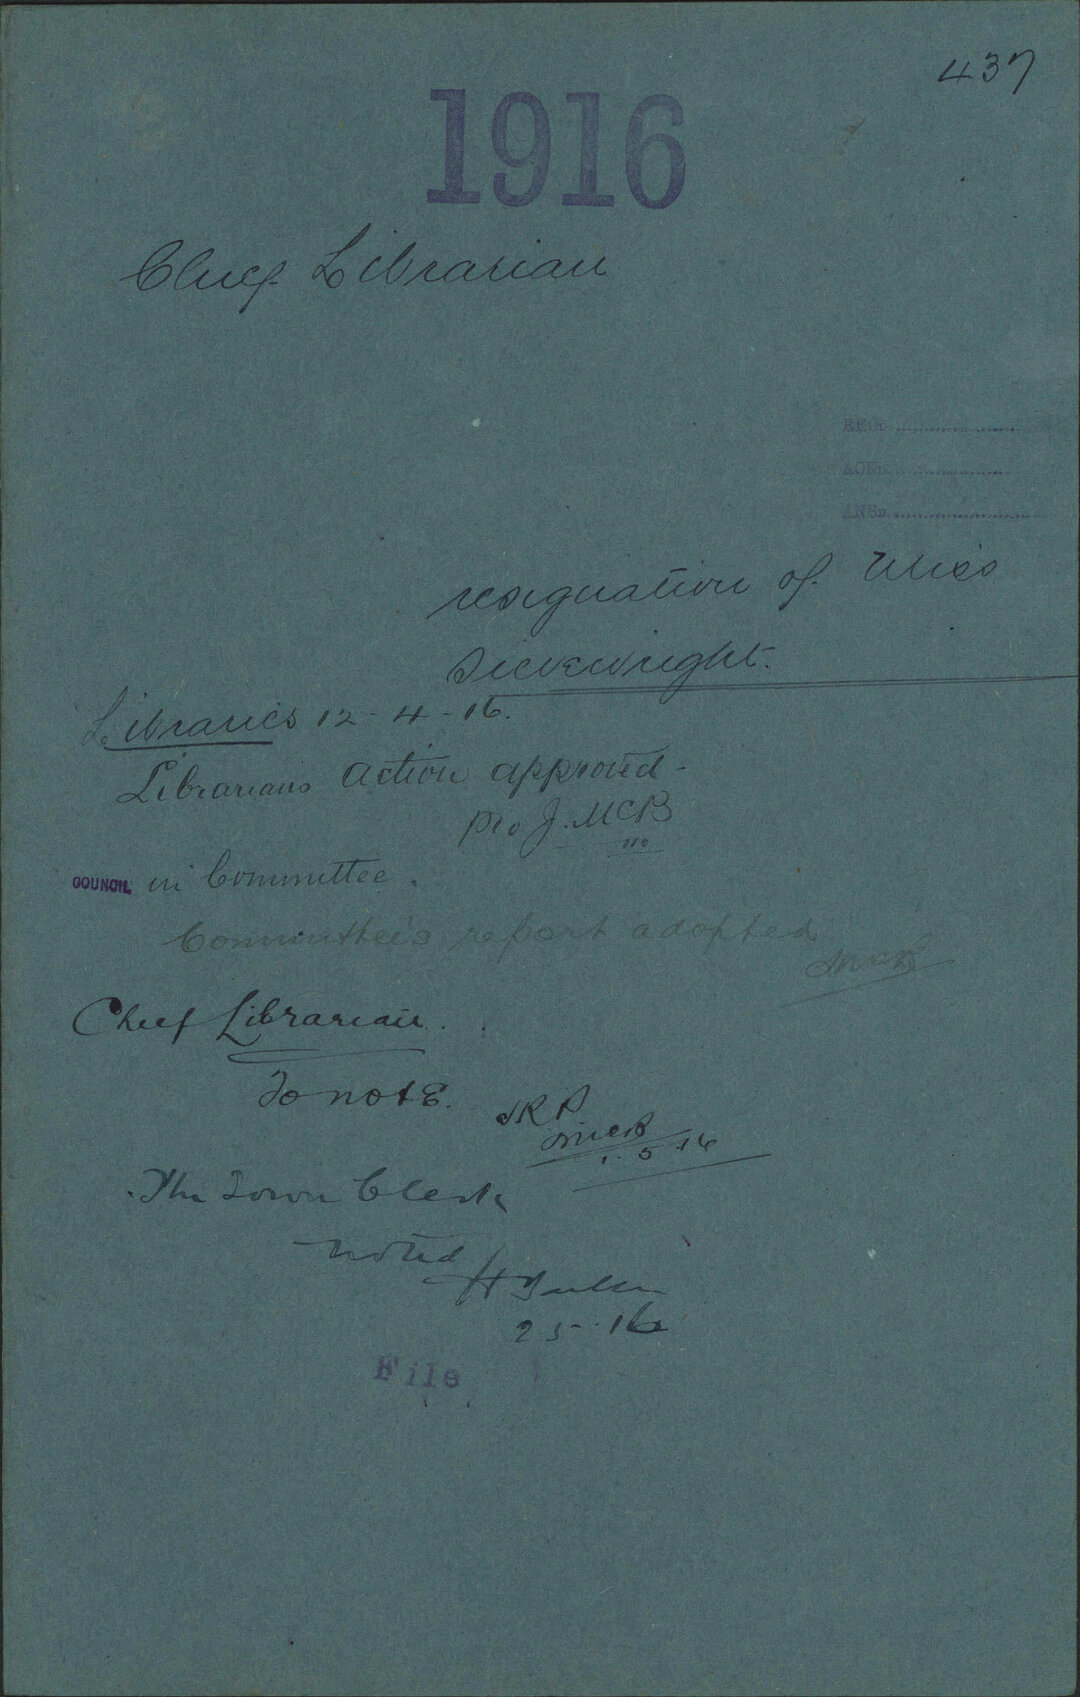 437
1916
Chief Librarian
REC
ACK
ANS
resignation of Miss
Sievewright.
Libraries 12-4-16.
Librarians action approved -
pro J. McB
COUNCIL in Committee.
Committee's report adopted
McB
Chief Librarian.
To note.
McB
1.5.16
The Town Clerk
noted
25.16
File